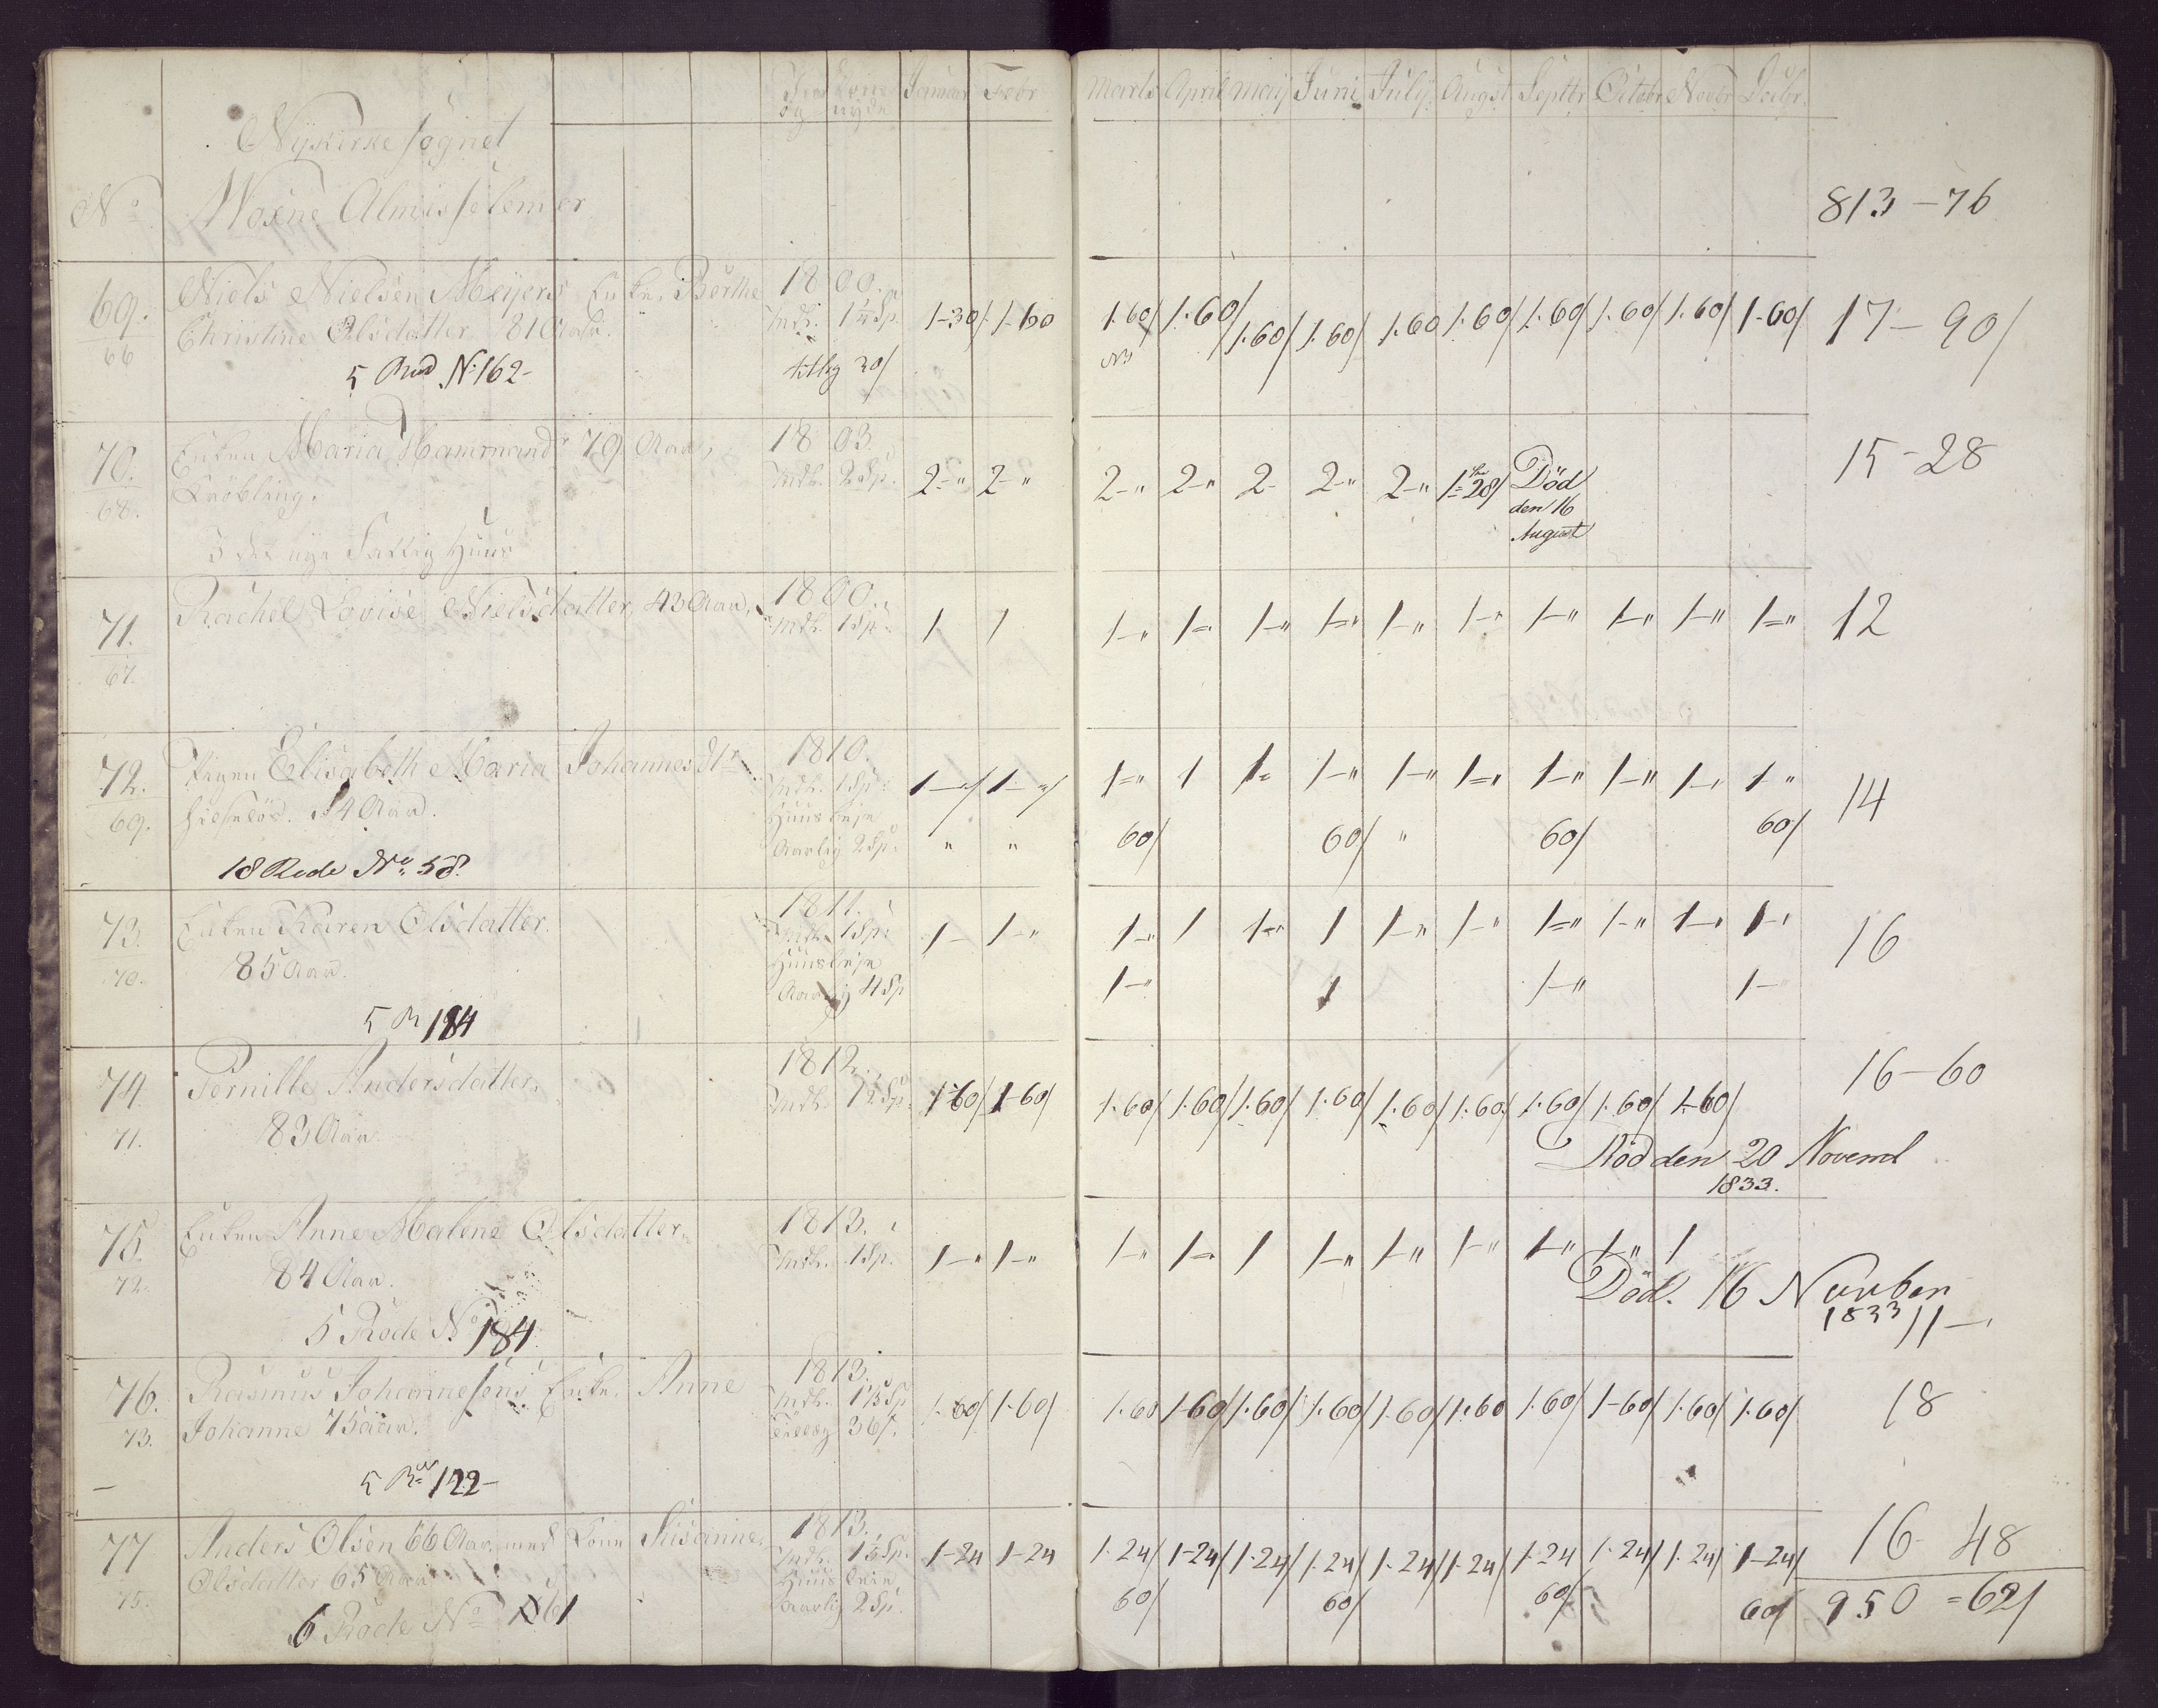 Januar Febr Marts April Maij Juni Julij August Septbr Octobr Novbr Decbr.
og nyde
Nykirke sognet
No Woxne Almisselemer
813 - 76
69. Niels Nielsen Meyers Enke, Berthe 1800. 1-30/ 1-60 1.60/ 1.60/ 1.60/ 1.60/ 1.60 1.60/ 1.60/ 1.60/ 1.60/ 1-60/ 17 - 90/
66 Christine Olsdatter 81 Aar. Mdl. 1¼ Sp.
5 Rod No 162- tillæg 30/
70. Enken Maria Hammand 79 Aar, 1803 2-" 2-" 2-" 2-" 2- 2-" 2-" 1-28/ Död 15 - 28
68. Mdl. 2 Sp. den 16
August
I det nye Fattig Huus
71. Rachel Lovise Nielsdatter, 43 Aar, 1800. 1 1 1-" 1-" 1-" 1-" 1-" 1-" 1-" 1-" 1-" 1-" 12
67. Mdl. 1 Sp.
72. Pigen Elisabeth Maria Johannesdtr 1810. 1-"/ 1-"/ 1-" 1 1- 1-" 1-" 1-" 1-" 1-" 1-" 1-" 14
69. hielpelös. 54 Aar. Mdl. 1 Sp.
Huusleje
Aarlig 2 Sp. " " 60/ 60/ " 60/ 60/
18 Rode No 58.
73. Enken Karen Olsdatter. 1811. 1- 1-" 1-" 1 1-" 1 1-" 1-" 1-" 1-" 1-" 1-" 16
70. 85 Aar. Mdl. 1 Sp.
Huusleje
Aarlig 4 Sp 1-" 1 1-" 1-
5 R 184
74. Pernille Andersdatter, 1812. 1-60/ 1-60/ 1.60/ 1.60/ 1.60/ 1.60/ 1.60/ 1.60/ 1.60/ 1.60/ 1-60/ 16 - 60
71. 83 Aar. Mdl. 1½ Sp.
Död den 20 Novemb
1833.
75. Enken Anne Malene Olsdatter. 1813. 1-" 1-" 1-" 1-" 1 1-" 1-" 1-" 1-" 1-" 1
72. 84 Aar. Mdl. 1 Sp.
Död. 16 November
1833 11-
5 Rode No 184
76. Rasmus Johannesens Enke, Anne 1813. 1-60/ 1-60/ 1.60 1-60/ 1.60/ 1.60/ 1.60/ 1.60 1.60/ 1-60/ 1.60/ 1.60/ 18
73. Johanne 75 aar. Mdl. 1½ Sp
Tillæg 36/.
5 R 122-
77 Anders Olsen 66 Aar, med Kone Susanne, 1813. 1-24 1-24 1.24/ 1-24/ 1.24/ 1.24/ 1.24/ 1.24/ 1.24 1.24/ 1.24/ 1-24/ 16 - 48
75. Olsdatter 65 Aar Mdl. Sp.
Huusleie
aarlig 2 Sp. 60/ 60/ 60/ 60/ 950 = 62/
6 Rode No 61